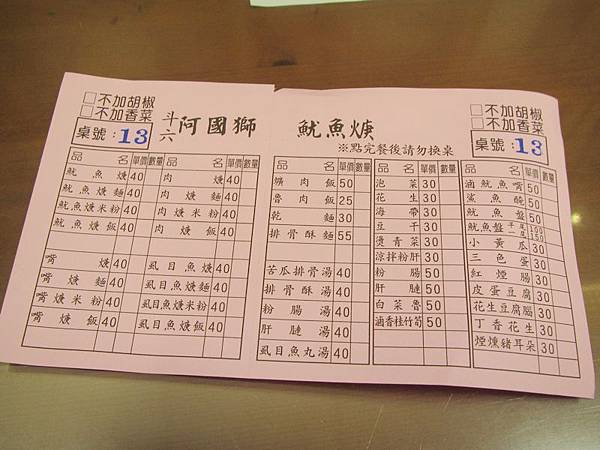 □不加胡椒
□不加香菜
桌號：13
斗六 阿國獅 魷魚焿
※點完餐後請勿換桌
□不加胡椒
□不加香菜
桌號：13
品名 單價 數量 品名 單價 數量
魷魚焿 40 肉焿 40
魷魚焿麵 40 肉焿麵 40
魷魚焿米粉 40 肉焿米粉 40
魷魚焿飯 40 肉焿飯 40
嘴焿 40 虱目魚焿 40
嘴焿麵 40 虱目魚焿麵 40
嘴焿米粉 40 虱目魚焿米粉 40
嘴焿飯 40 虱目魚焿飯 40
品名 單價 數量
爌肉飯 50
魯肉飯 25
乾麵 30
排骨酥麵 55
苦瓜排骨湯 40
排骨酥湯 40
粉腸湯 40
肝連湯 40
虱目魚丸湯 40
品名 單價 數量
泡菜 30
花生 30
海帶 30
豆干 30
燙青菜 30
涼拌粉肝 30
粉腸 50
肝連 50
白菜魯 50
滷香桂竹筍 50
品名 單價 數量
滷魷魚嘴 50
鯊魚 50
魷魚盤 50
魷魚盤 半足 100 150
小黃瓜 30
三色蛋 30
紅煙腸 30
皮蛋豆腐 30
花生豆腐 30
丁香花生 30
煙燻豬耳朵 30